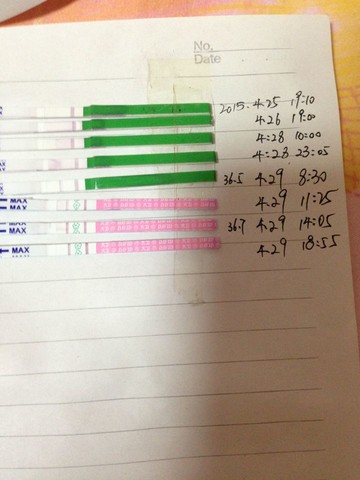 No.
Date
2015. 4.25 19:10
4.26 19:00
4:28 10:00
4:28 23:05
36.5 4.29 8:30
MAX 4.29 11:25
MAX
MAX 36.7 4.29 14:05
MAX
MAX 4.29 18:55